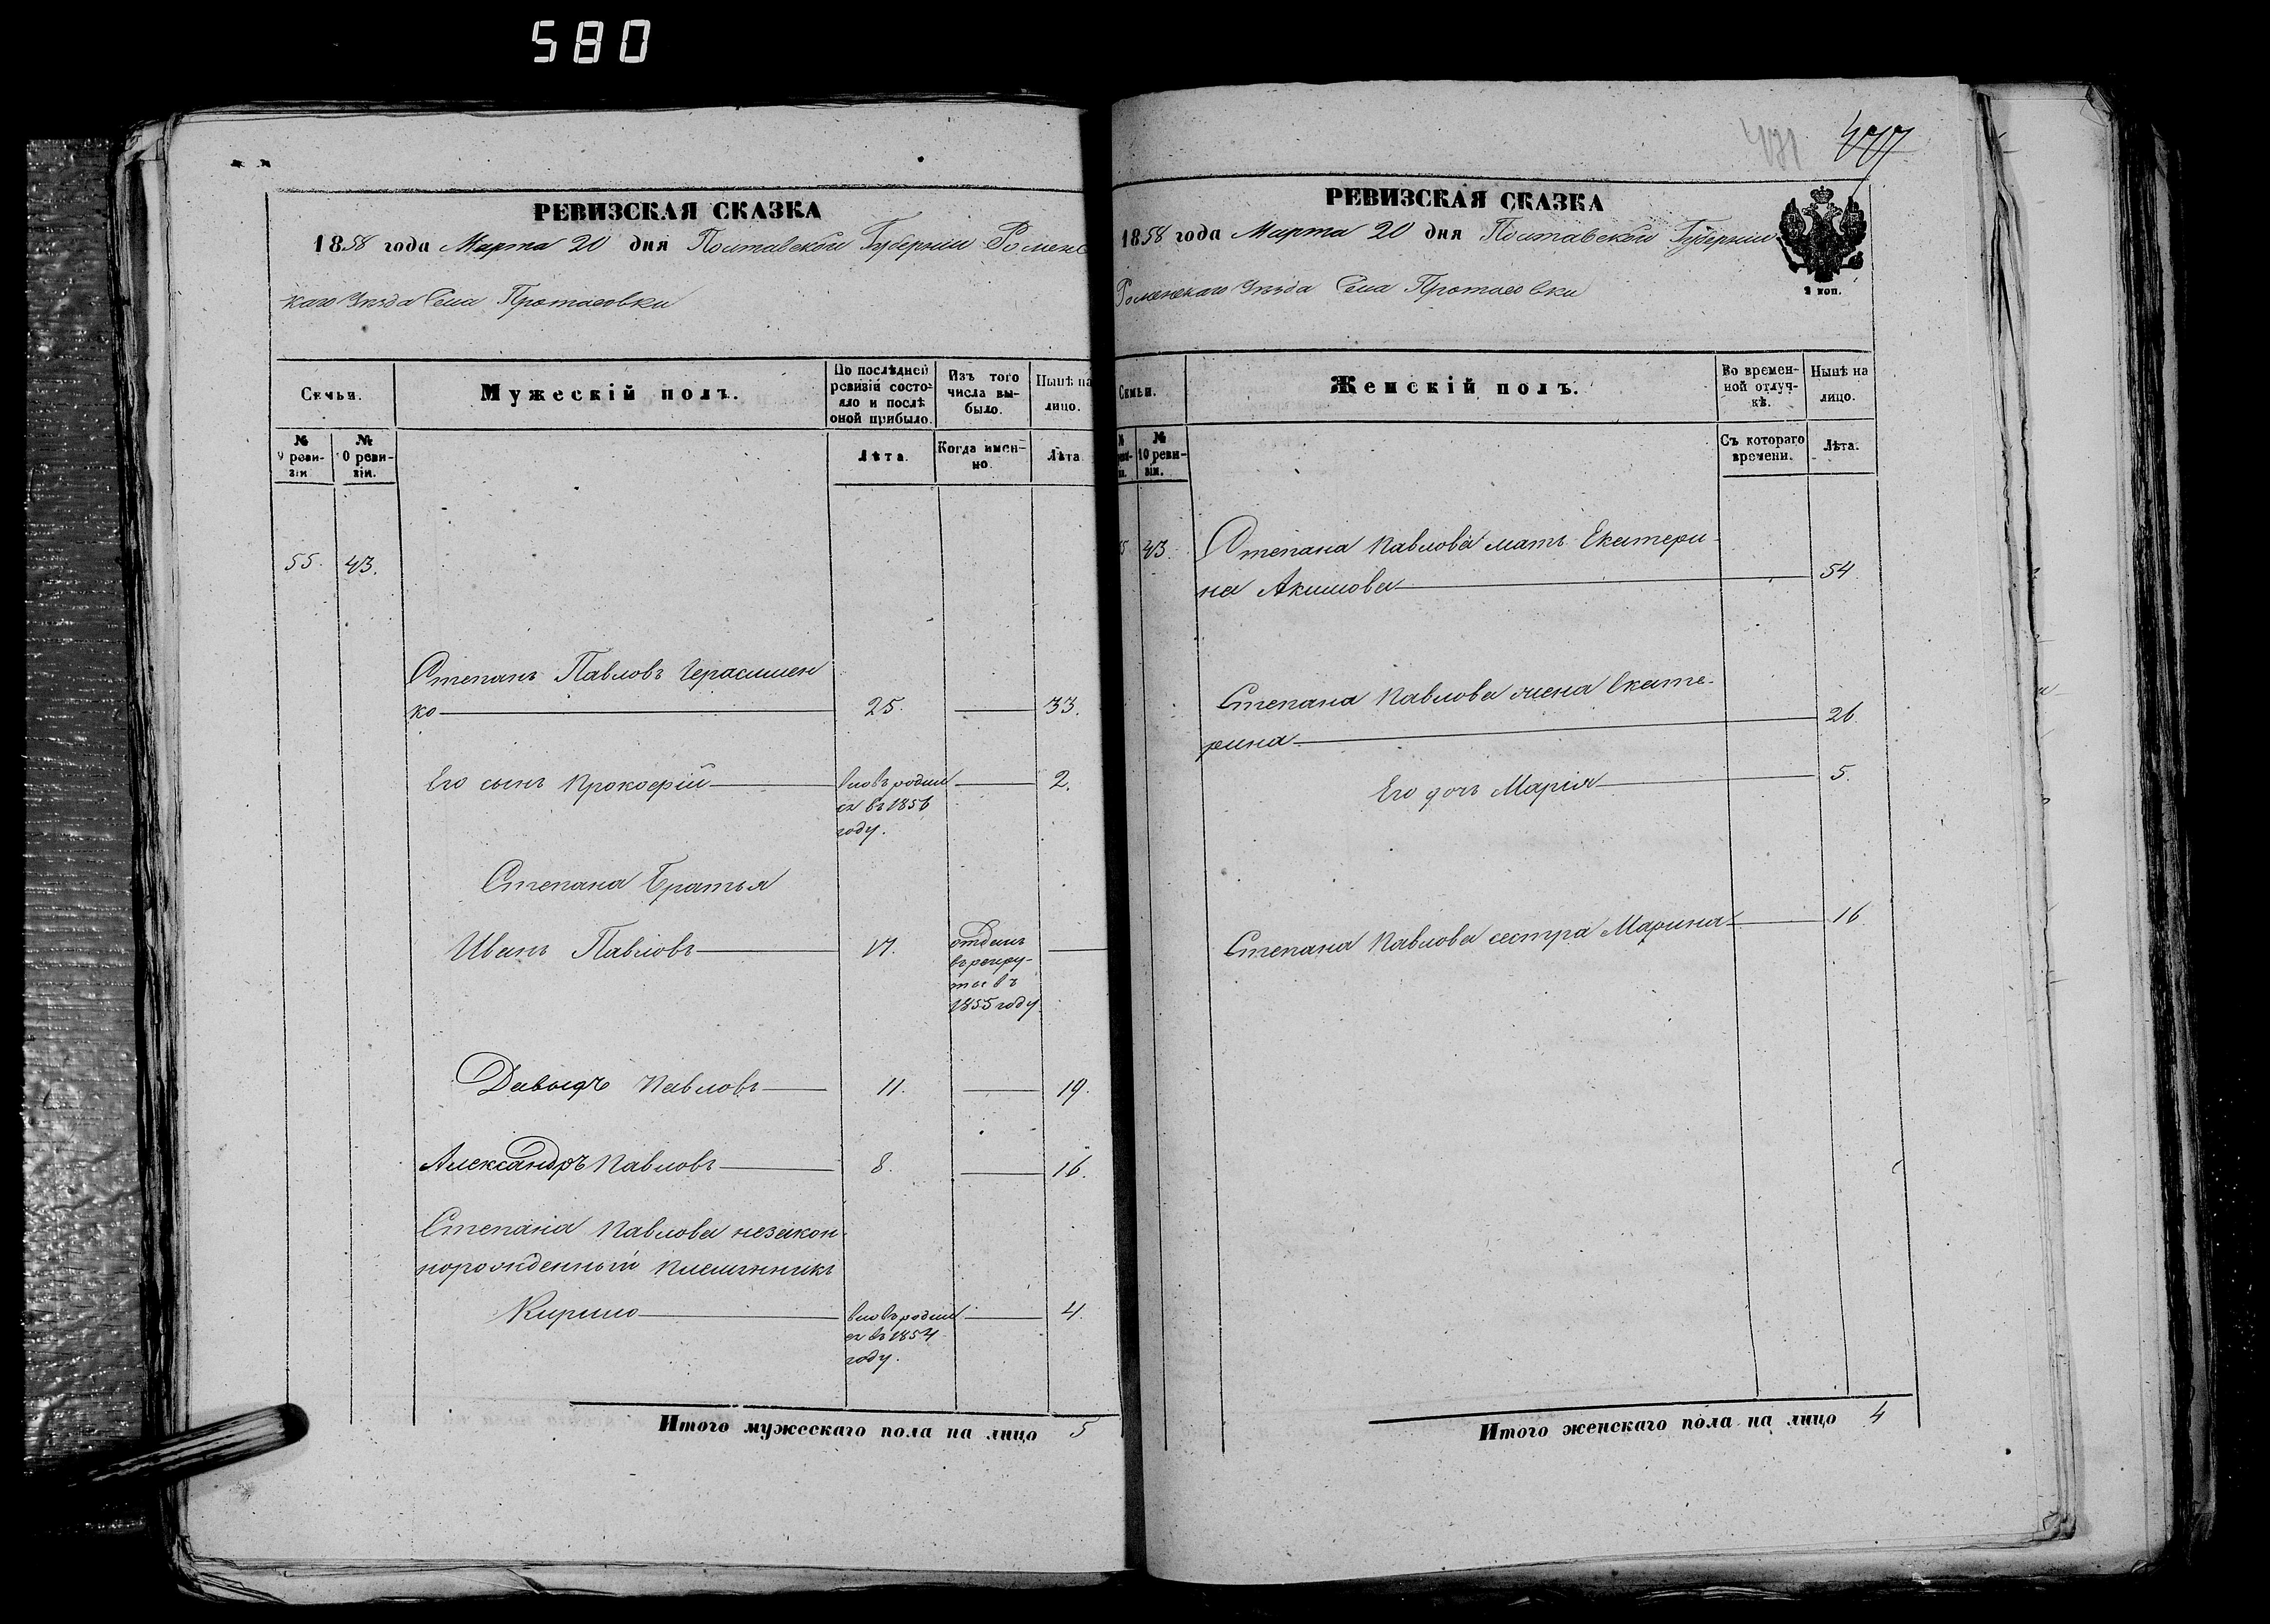 580
РЕВИЗСКАЯ СКАЗКА
1858 года Марта 20 дня Полтавской Губернии Роменс
каго Уезда Села Протасовки
Семьи.
Мужескій полъ.
По послѣдней ревизіи состояло и послѣ оной прибыло.
Изъ того числа выбыло.
Нынѣ на лицо.
№ 9 ревизіи.
№ 10 ревизіи.
Лѣта.
Когда именно.
Лѣта
55. 43.
Степанъ Павловъ Герасимен
ко 25. 33.
Его сынъ Прокофій вновь родил 2.
ся въ 1856
году.
Степана Братья
Иванъ Павловъ 17. отданъ
въ рекру-
ты въ
1855 году
Давыдъ Павловъ 11. 19.
Александръ Павловъ 8. 16.
Степана Павлова незакон
норожденный племянникъ
Кирило вновь родил 4.
ся въ 1854
году.
Итого мужескаго пола на лицо 5
471 477
РЕВИЗСКАЯ СКАЗКА
1858 года Марта 20 дня Полтавской Губернии
Роменскаго Уезда Села Протасовки
2 коп.
Семьи.
Женскій полъ.
Во временной отлучкѣ.
Нынѣ на лицо.
№ 10 ревизіи.
Съ котораго времени.
Лѣта.
5 43. Степана Павлова мать Екатери
на Акимова 54.
Степана Павлова жена Екате-
рина 26.
Его дочь Марія 5.
Степана Павлова сестра Марина 16
Итого женскаго пола на лицо 4